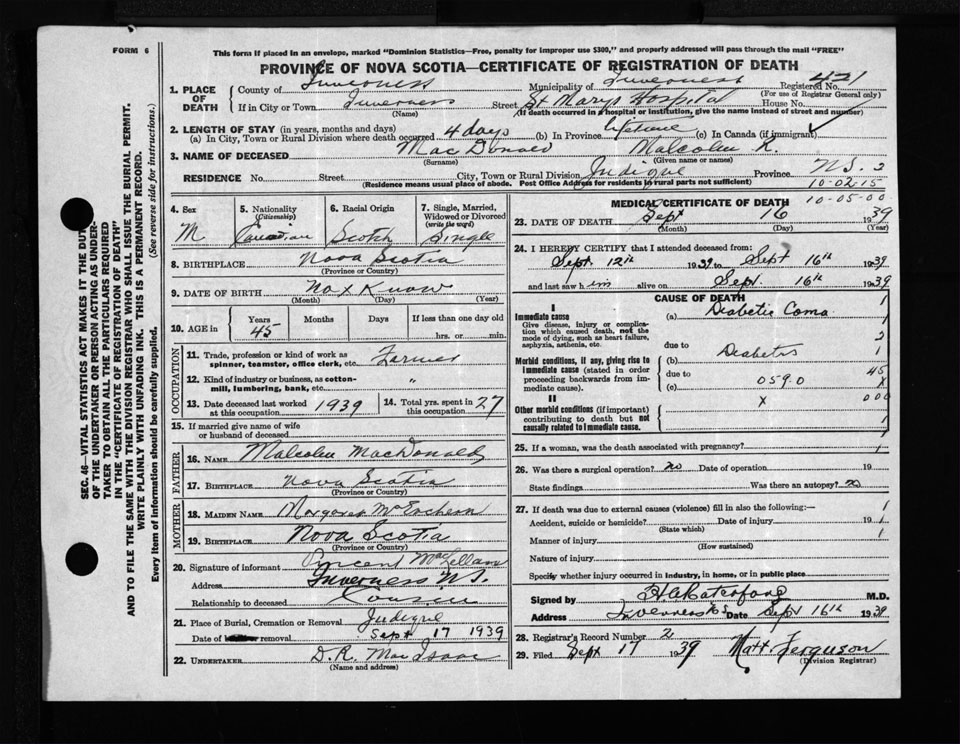 FORM 6
This form if placed in an envelope, marked "Dominion Statistics—Free, penalty for improper use $300," and properly addressed will pass through the mail "FREE"
PROVINCE OF NOVA SCOTIA—CERTIFICATE OF REGISTRATION OF DEATH
1. PLACE OF DEATH { County of Inverness Municipality of Inverness Registered No. 421
(For use of Registrar General only)
If in City or Town Inverness Street St Marys Hospital House No.
(Name) (If death occurred in a hospital or institution, give the name instead of street and number)
2. LENGTH OF STAY (in years, months and days)
(a) In City, Town or Rural Division where death occurred 4 days (b) In Province lifetime (c) In Canada (if immigrant)
3. NAME OF DECEASED MacDonald Malcolm K.
(Surname) (Given name or names)
RESIDENCE No. Street City, Town or Rural Division Judique Province N.S. 2
(Residence means usual place of abode. Post Office Address for residents in rural parts not sufficient) 10-02.15
10-05-00
4. Sex 5. Nationality (Citizenship) 6. Racial Origin 7. Single, Married, Widowed or Divorced (write the word)
M. Canadian Scotch Single
8. BIRTHPLACE Nova Scotia
(Province or Country)
9. DATE OF BIRTH Not Know
(Month) (Day) (Year)
10. AGE in { Years Months Days If less than one day old
45 hrs. or min.
OCCUPATION
11. Trade, profession or kind of work as spinner, teamster, office clerk, etc. Farmer
12. Kind of industry or business, as cotton-mill, lumbering, bank, etc. "
13. Date deceased last worked at this occupation 1939 14. Total yrs. spent in this occupation 27
15. If married give name of wife or husband of deceased
FATHER
16. NAME Malcolm MacDonald
17. BIRTHPLACE Nova Scotia
(Province or Country)
MOTHER
18. MAIDEN NAME Margaret McEachern
19. BIRTHPLACE Nova Scotia
(Province or Country)
20. Signature of informant Vincent MacLellan
Address Inverness N.S.
Relationship to deceased Cousin
21. Place of Burial, Cremation or Removal Judique
Date of burial or removal Sept 17 1939
22. UNDERTAKER D.R. MacIsaac
(Name and address)
MEDICAL CERTIFICATE OF DEATH
23. DATE OF DEATH Sept 16 1939
(Month) (Day) (Year)
24. I HEREBY CERTIFY that I attended deceased from:
Sept. 12th 1939 to Sept 16th 1939
and last saw him alive on Sept. 16th 1939
CAUSE OF DEATH 1
I
Immediate cause (a) Diabetic Coma
Give disease, injury or complication which caused death, not the mode of dying, such as heart failure, asphyxia, asthenia, etc.
due to 2
Morbid conditions, if any, giving rise to immediate cause (stated in order proceeding backwards from immediate cause).
(b) Diabetes 1
due to 45
(c) 059.0 X
II X 000
Other morbid conditions (if important) contributing to death but not causally related to immediate cause. 1
25. If a woman, was the death associated with pregnancy? 1
26. Was there a surgical operation? no Date of operation 19
State findings Was there an autopsy? no
27. If death was due to external causes (violence) fill in also the following:— 1
Accident, suicide or homicide? Date of injury 19 1
(State which)
Manner of injury 1
(How sustained)
Nature of injury
Specify whether injury occurred in industry, in home, or in public place
Signed by M.D.
Address Inverness N.S. Date Sept 16th 1939
28. Registrar's Record Number 2
29. Filed Sept 17 1939 Matt Ferguson
(Division Registrar)
SEC. 46—VITAL STATISTICS ACT MAKES IT THE DUTY
OF THE UNDERTAKER OR PERSON ACTING AS UNDER-
TAKER TO OBTAIN ALL THE PARTICULARS REQUIRED
IN THE "CERTIFICATE OF REGISTRATION OF DEATH"
AND TO FILE THE SAME WITH THE DIVISION REGISTRAR WHO SHALL ISSUE THE BURIAL PERMIT.
WRITE PLAINLY WITH UNFADING INK. THIS IS A PERMANENT RECORD.
Every item of information should be carefully supplied. (See reverse side for instructions.)